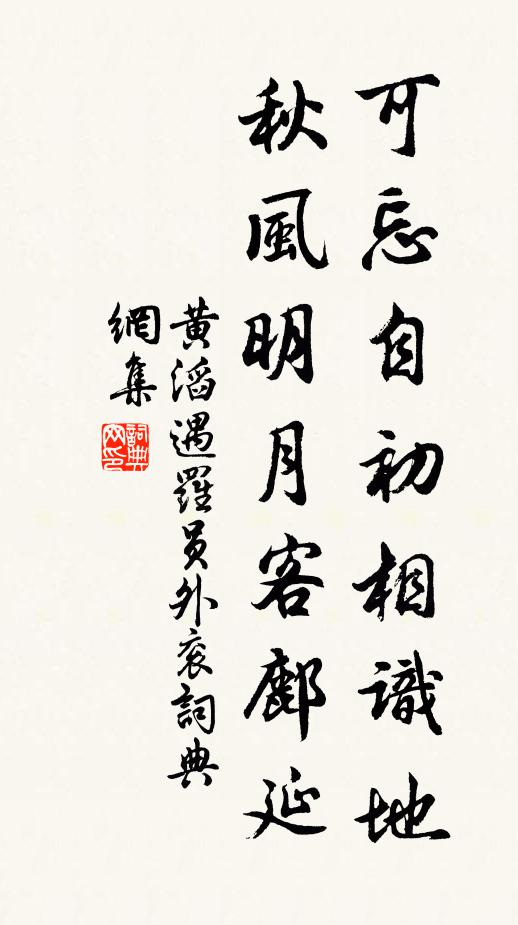 可忘自初相識地
秋風明月客鄜延
黃滔遇羅員外衮詞典
網集
詞典網印